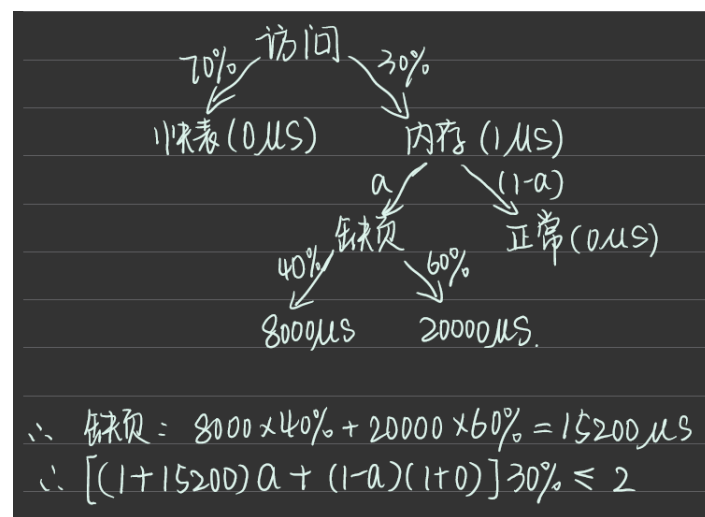 访问
70% 30%
快表(0μs) 内存(1μs)
a (1-a)
缺页 正常(0μs)
40% 60%
8000μs 20000μs.
∴ 缺页: 8000×40%+20000×60%=15200μs
∴ [(1+15200)a+(1-a)(1+0)]30%≤2